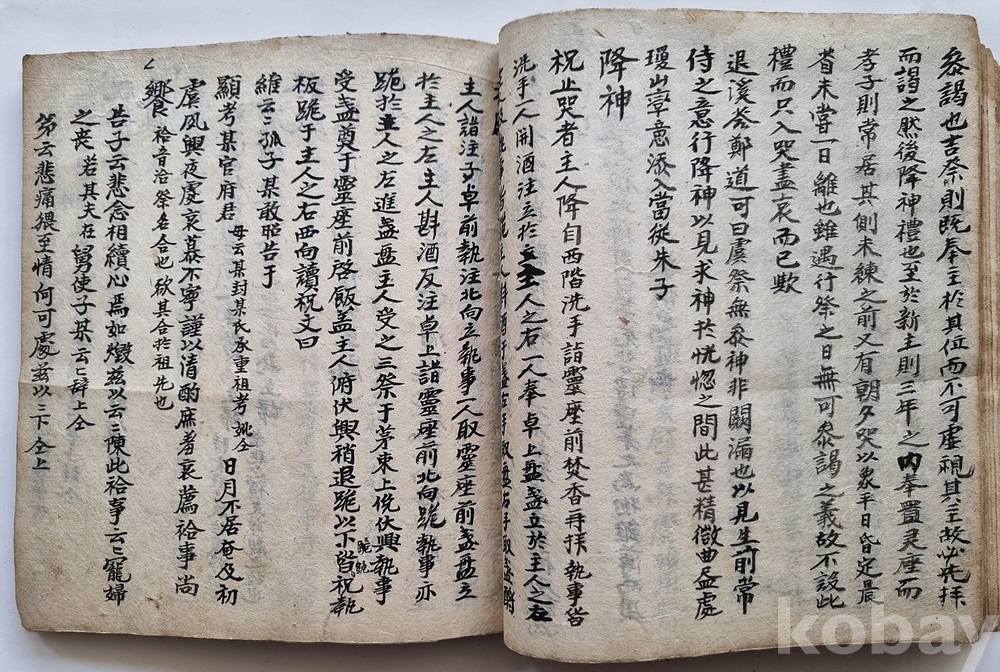 叅謁也吉祭則既奉主於其位而不可虗視其主故必先拜
而謁之然後降神禮也至於新主則三年之內奉置灵座而
孝子則常居其側未練之前又有朝夕哭以象平日昏定晨
省未嘗一日離也雖遇行祭之日無可叅謁之義故不設此
禮而只入哭盡哀而已歟
退溪答鄭道可曰虞祭無叅神非闕漏也以見生前常
侍之意行降神以見求神於恍惚之間此甚精微曲盡處
瓊山章意添入當從朱子
降神
祝止哭者主人降自西階洗手詣靈座前焚香再拜執事皆
洗手一人開酒注立於主人之右一人奉卓上盤盞立於主人之左
主人詣注子卓前執注北向立執事一人取靈座前盞盤立
於主人之左主人斟酒反注卓上詣靈座前北向跪執事亦
跪於主人之左進盞盤主人受之三祭于茅束上俛伏興執事
受盞奠于靈座前啓飯盖主人俯伏興稍退跪以下皆跪祝執
板跪于主人之右西向讀祝文曰
維云云孤子某敢昭告于
顯考某官府君 母云某封某氏承重祖考妣仝 日月不居奄及初
虞夙興夜處哀慕不寧謹以清酌庶羞哀薦祫事尚
饗 祫音洽祭名合也欲其合於祖先也
告子云悲念相續心焉如燬玆以云云陳此祫事云云寵婦
之喪若其夫在舅使子某云云辭上仝
弟云悲痛猥至情何可處玆以云云下仝上
kobay